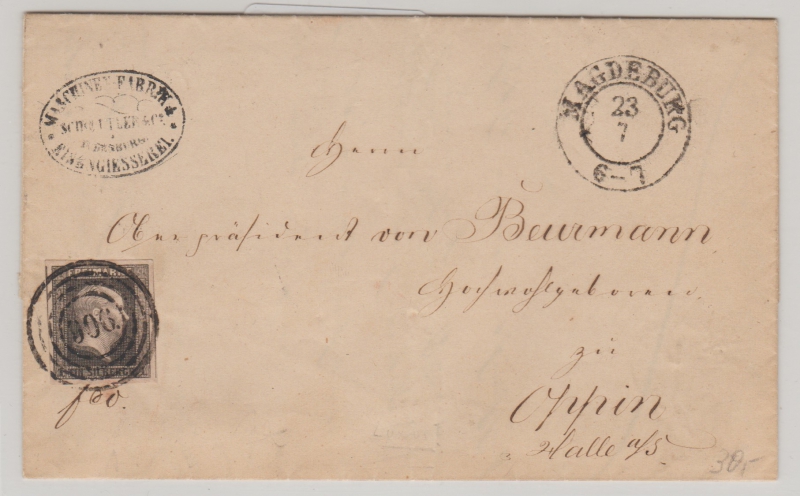 MASCHINEN-FABRIK &
SCHOETTLER & Cº
EISENGIESSEREI.
MAGDEBURG
23
7
6-7
Herrn
Oberpräsident von Beurmann
Hochwohlgeboren
zu
Oppin
Halle a/S.
906.
fco.
30,-